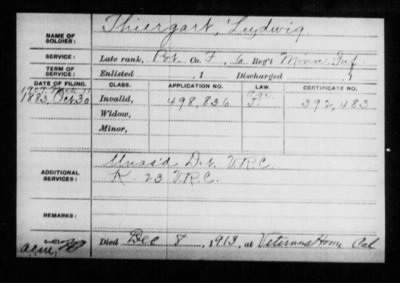 NAME OF SOLDIER: Thiergart, Ludwig
SERVICE: Late rank, Pvt. Co. F, 6 Reg't Minn Inf
TERM OF SERVICE: Enlisted , 1 Discharged , 1
DATE OF FILING. CLASS. APPLICATION NO. LAW. CERTIFICATE NO.
1883, Oct 30 Invalid, 498,836 392,483
Widow,
Minor,
ADDITIONAL SERVICES: Unas'd Det. V.R.C.
K 23 V.R.C.
REMARKS:
Died Dec 8, 1913, at Veterans Home Cal